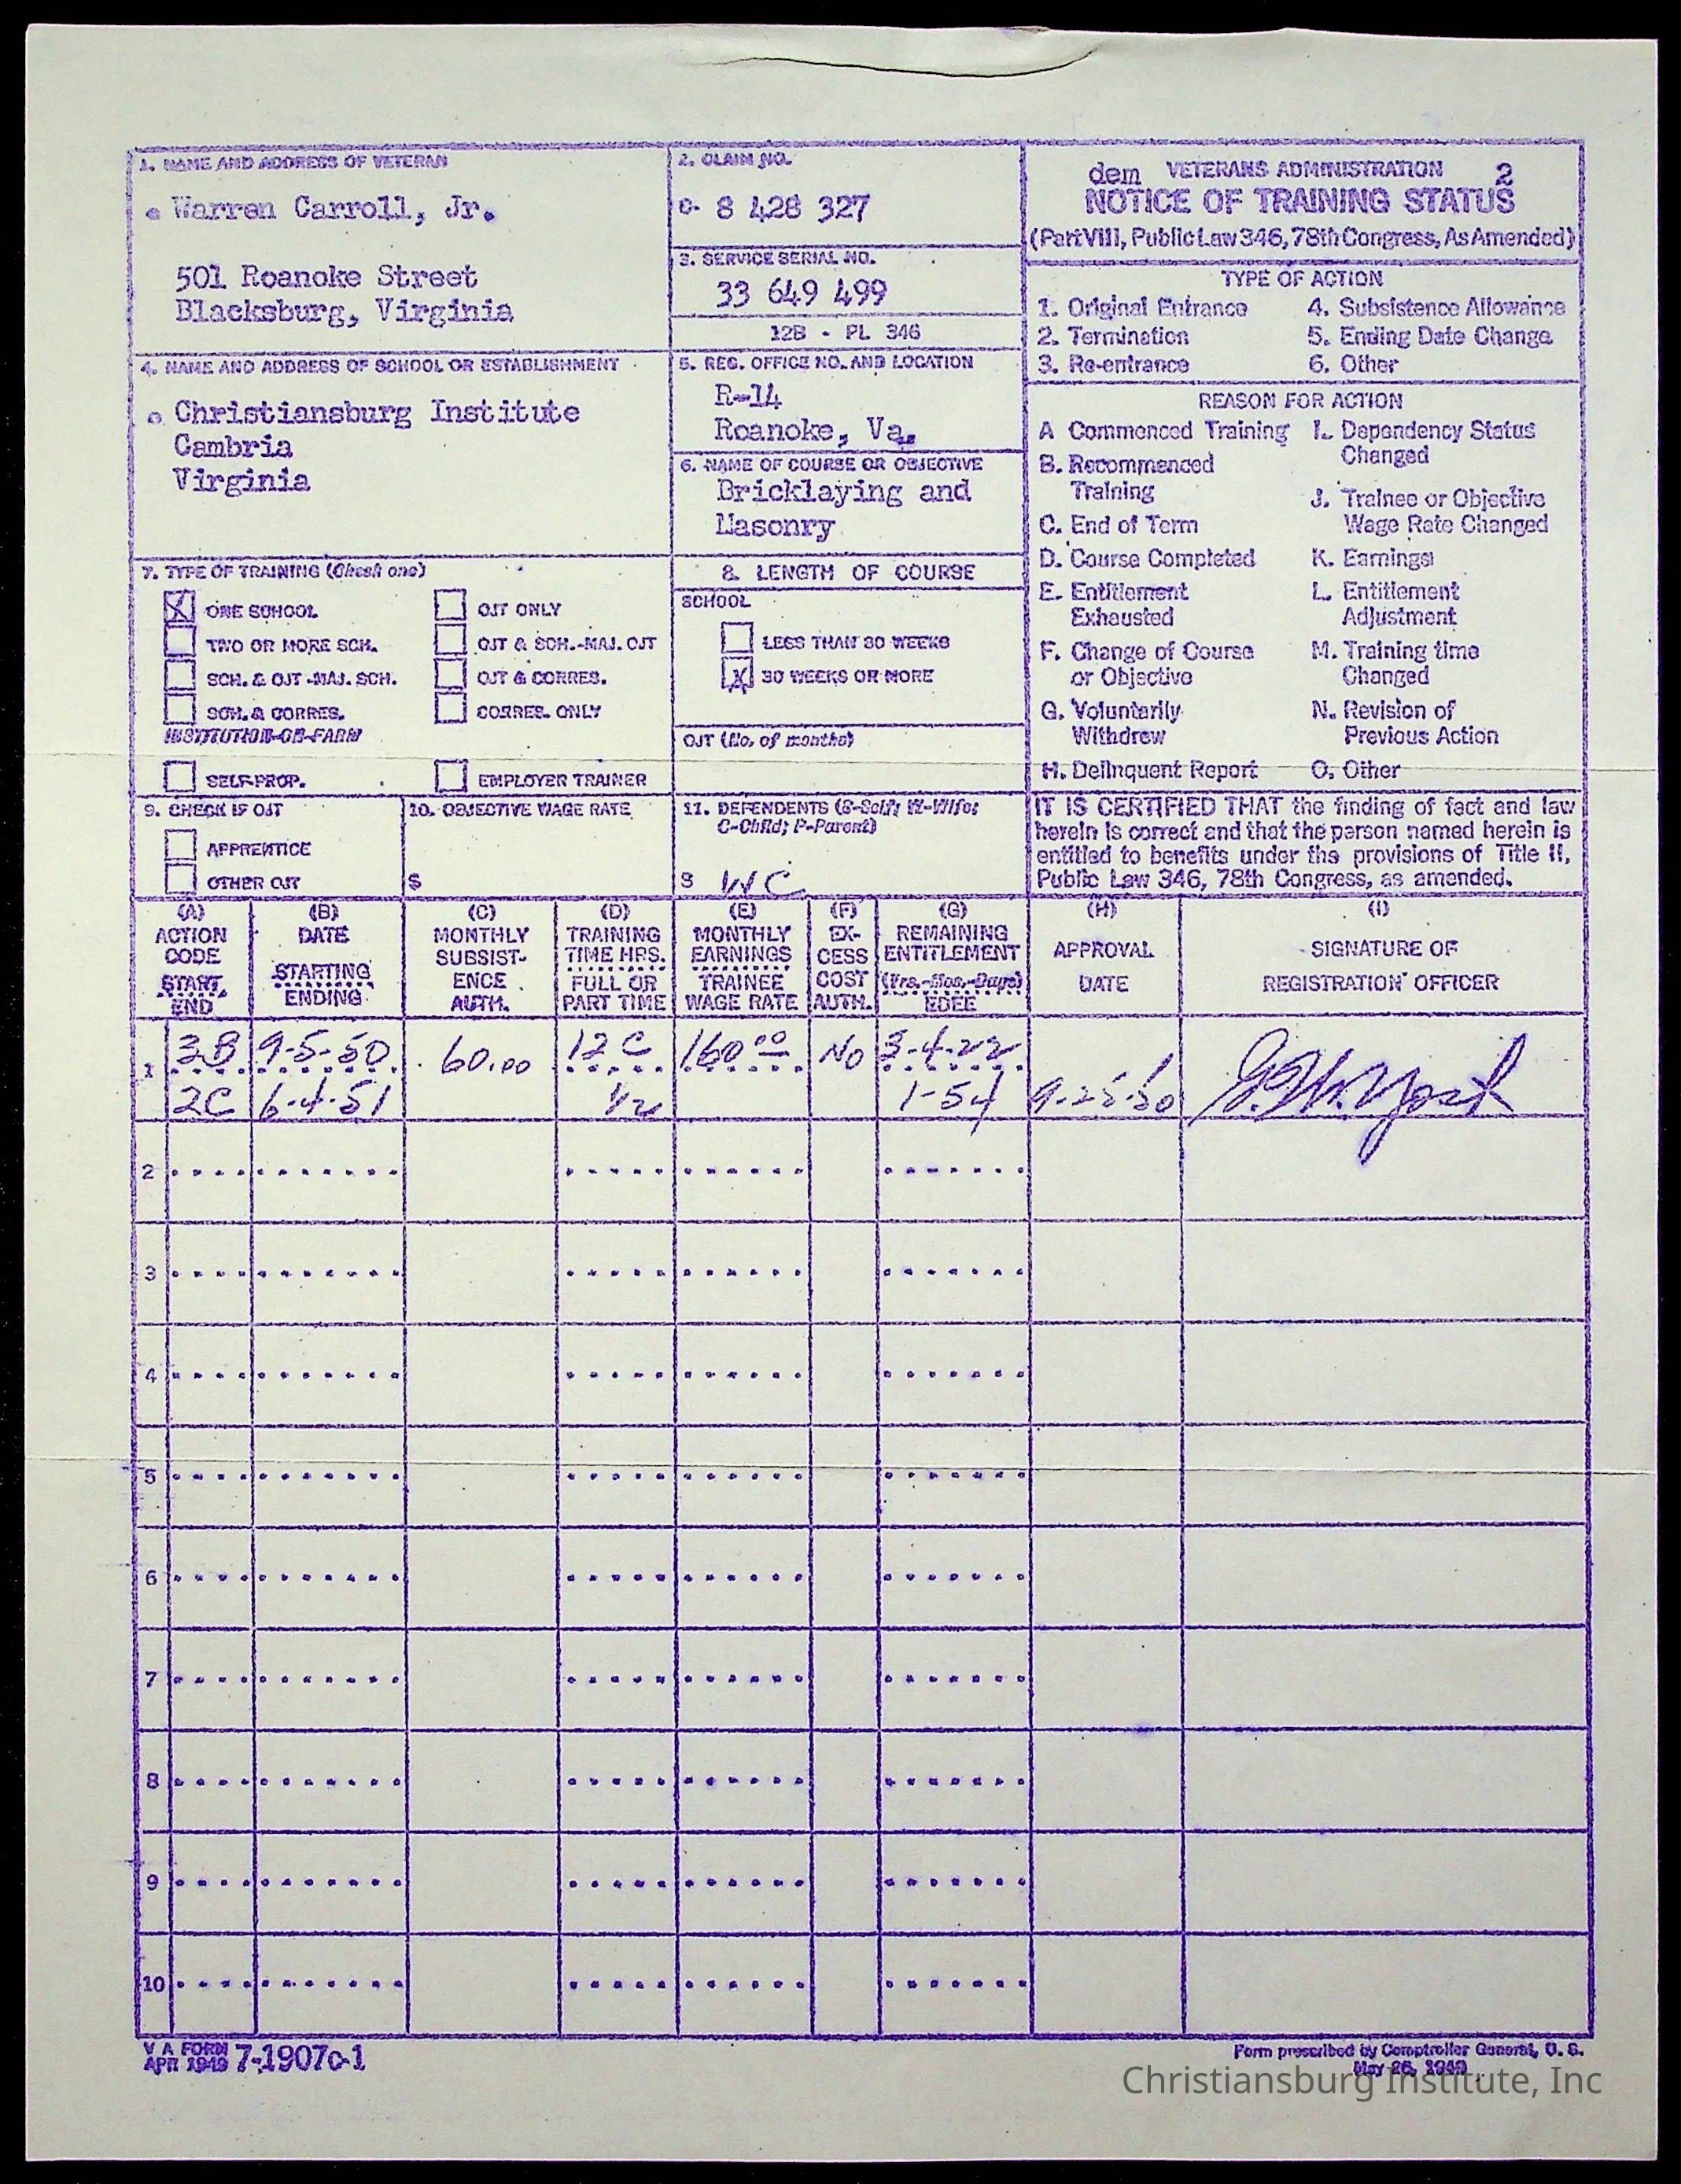 1. NAME AND ADDRESS OF VETERAN
Warren Carroll, Jr.
501 Roanoke Street
Blacksburg, Virginia
2. CLAIM NO.
C- 8 428 327
3. SERVICE SERIAL NO.
33 649 499
12B - PL 346
dem VETERANS ADMINISTRATION 2
NOTICE OF TRAINING STATUS
(Part VIII, Public Law 346, 78th Congress, As Amended)
TYPE OF ACTION
1. Original Entrance
2. Termination
3. Re-entrance
4. Subsistence Allowance
5. Ending Date Change
6. Other
4. NAME AND ADDRESS OF SCHOOL OR ESTABLISHMENT
Christiansburg Institute
Cambria
Virginia
5. REG. OFFICE NO. AND LOCATION
R-14
Roanoke, Va.
6. NAME OF COURSE OR OBJECTIVE
Bricklaying and
Masonry
REASON FOR ACTION
A Commenced Training
B. Recommenced
Training
C. End of Term
D. Course Completed
E. Entitlement
Exhausted
F. Change of Course
or Objective
G. Voluntarily
Withdrew
H. Delinquent Report
I. Dependency Status
Changed
J. Trainee or Objective
Wage Rate Changed
K. Earnings
L. Entitlement
Adjustment
M. Training time
Changed
N. Revision of
Previous Action
O. Other
7. TYPE OF TRAINING (Check one)
X ONE SCHOOL
TWO OR MORE SCH.
SCH. & OJT -MAJ. SCH.
SCH. & CORRES.
INSTITUTION-ON-FARM
SELF-PROP.
OJT ONLY
OJT & SCH.-MAJ. OJT
OJT & CORRES.
CORRES. ONLY
EMPLOYER TRAINER
8. LENGTH OF COURSE
SCHOOL
LESS THAN 30 WEEKS
X 30 WEEKS OR MORE
OJT (No. of months)
9. CHECK IF OJT
APPRENTICE
OTHER OJT
10. OBJECTIVE WAGE RATE
$
11. DEPENDENTS (S-Self; W-Wife;
C-Child; P-Parent)
S WC
IT IS CERTIFIED THAT the finding of fact and law
herein is correct and that the person named herein is
entitled to benefits under the provisions of Title II,
Public Law 346, 78th Congress, as amended.
(A)
ACTION
CODE
START
END
(B)
DATE
STARTING
ENDING
(C)
MONTHLY
SUBSIST-
ENCE
AUTH.
(D)
TRAINING
TIME HRS.
FULL OR
PART TIME
(E)
MONTHLY
EARNINGS
TRAINEE
WAGE RATE
(F)
EX-
CESS
COST
AUTH.
(G)
REMAINING
ENTITLEMENT
(Yrs.-Mos.-Days)
EDEE
(H)
APPROVAL
DATE
(I)
SIGNATURE OF
REGISTRATION OFFICER
1 3B 9-5-50 60.00 12 C 160.00 No 3-4-22
2C 6-4-51 1/2 1-54 9-25-50
2
3
4
5
6
7
8
9
10
V A FORM
APR 1949 7-1907c-1
Form prescribed by Comptroller General, U. S.
May 26, 1949
Christiansburg Institute, Inc